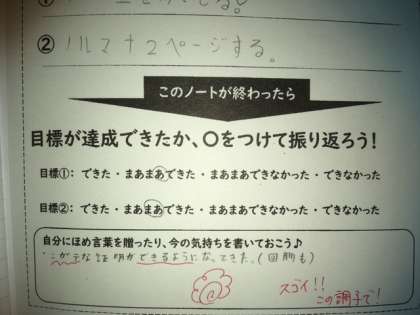 ② ノルマ+2ページする。
このノートが終わったら
目標が達成できたか、〇をつけて振り返ろう!
目標①： できた ・ まあまあできた ・ まあまあできなかった ・ できなかった
目標②： できた ・ まあまあできた ・ まあまあできなかった ・ できなかった
自分にほめ言葉を贈ったり、今の気持ちを書いておこう♪
にがてな証明ができるようになってきた。(回転も)
スゴイ!!
この調子で!